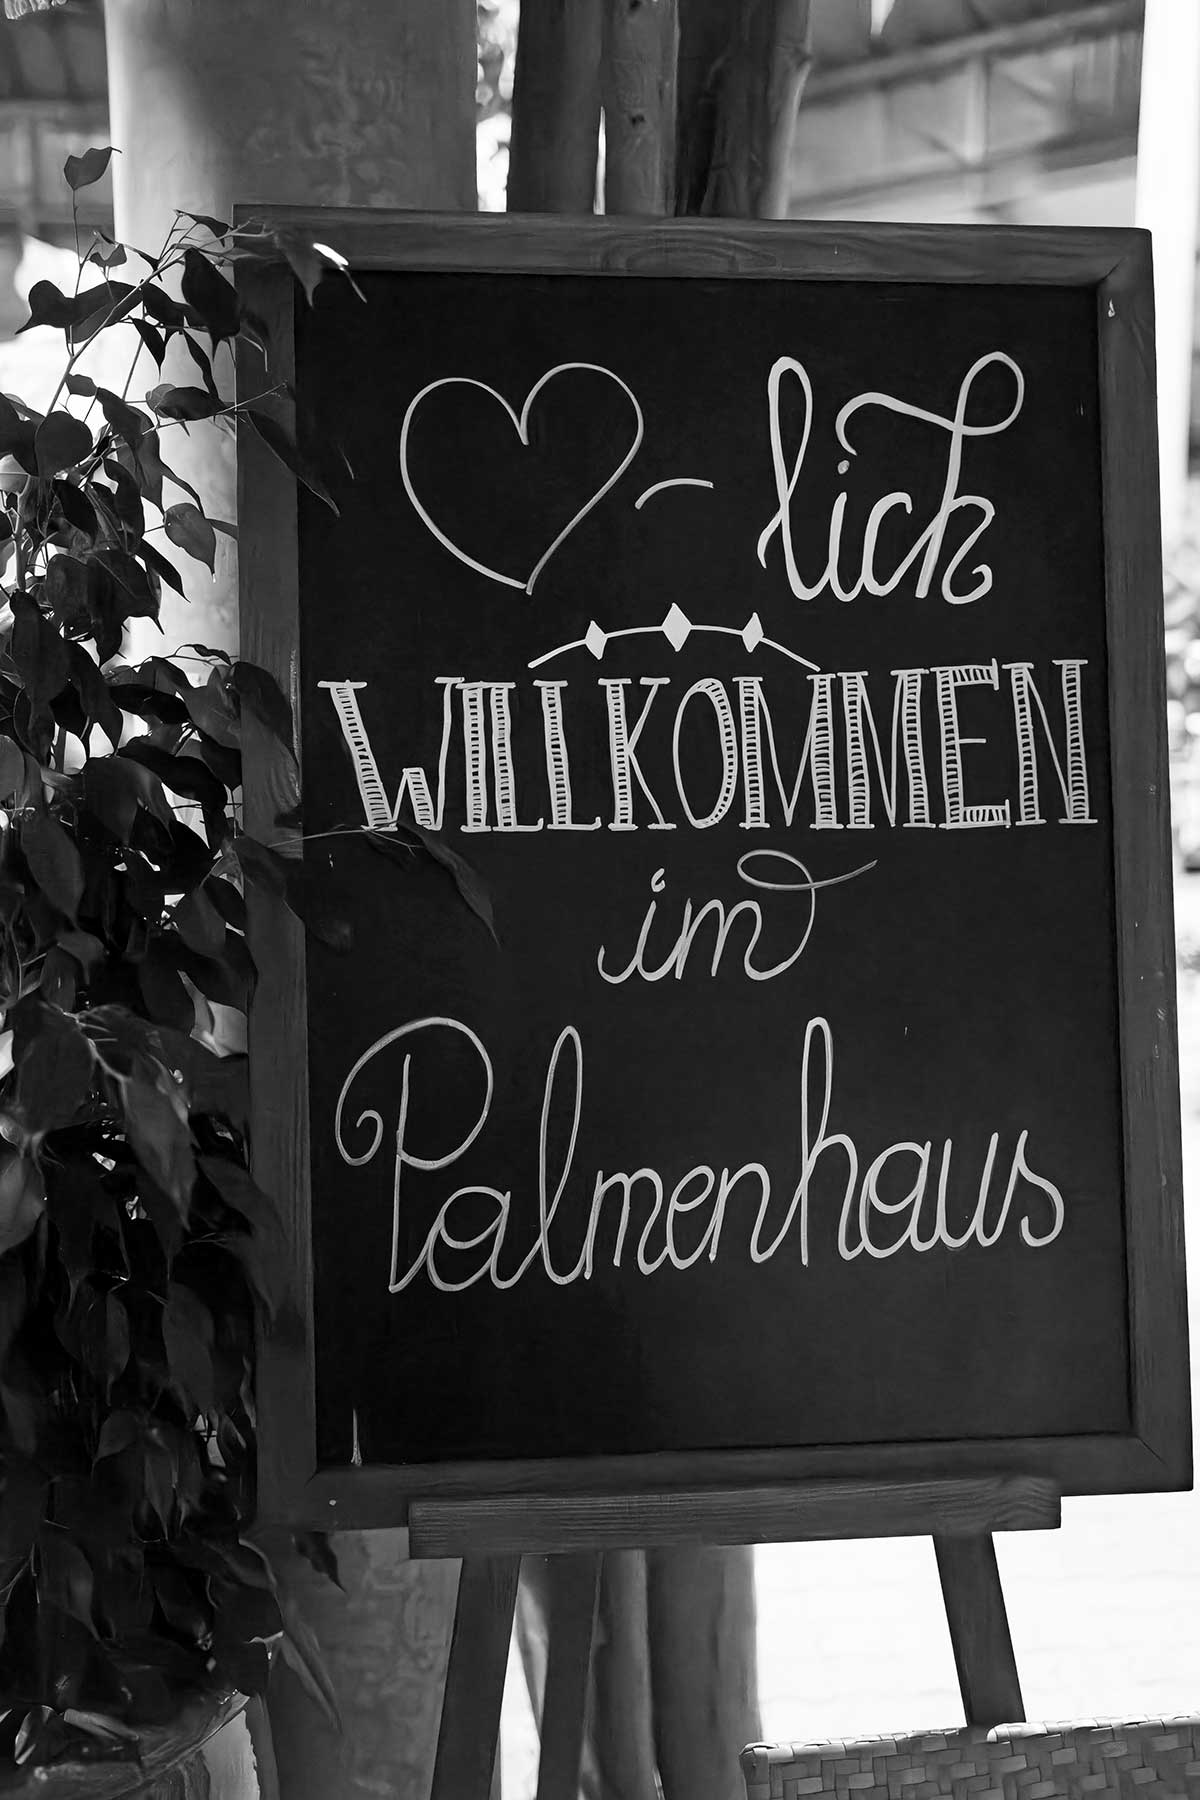 ♡-lich
WILLKOMMEN
im
Palmenhaus